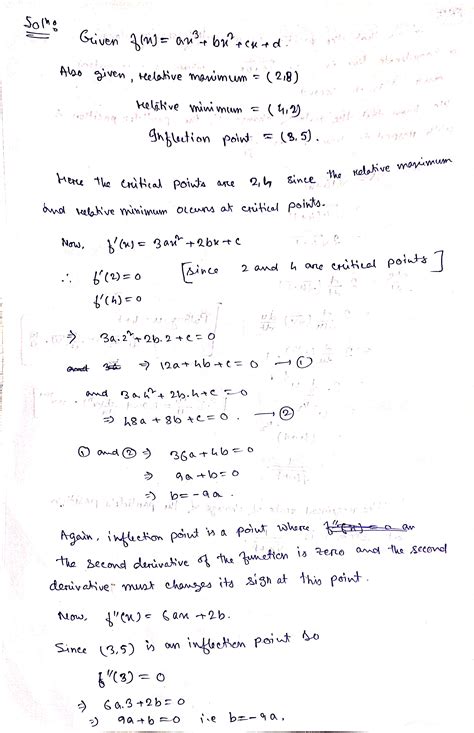 Soln:
Given f(x) = ax³ + bx² + cx + d.
Also given, relative maximum = (2,8)
relative minimum = (4,2)
Inflection point = (3,5).
Here the critical points are 2,4 since the relative maximum
and relative minimum occurs at critical points.
Now, f'(x) = 3ax² + 2bx + c
∴ f'(2) = 0 [since 2 and 4 are critical points]
f'(4) = 0
⇒ 3a.2² + 2b.2 + c = 0
and ⇒ 12a + 4b + c = 0 → ①
and 3a4² + 2b.4 + c = 0
⇒ 48a + 8b + c = 0. → ②
① and ② ⇒ 36a + 4b = 0
⇒ 9a + b = 0
⇒ b = -9a.
Again, inflection point is a point where f''(x) = 0 an
the second derivative of the function is zero and the second
derivative must changes its sign at this point.
Now, f''(x) = 6ax + 2b.
Since (3,5) is an inflection point so
f''(3) = 0
⇒ 6a.3 + 2b = 0
⇒ 9a + b = 0 i.e b = -9a.